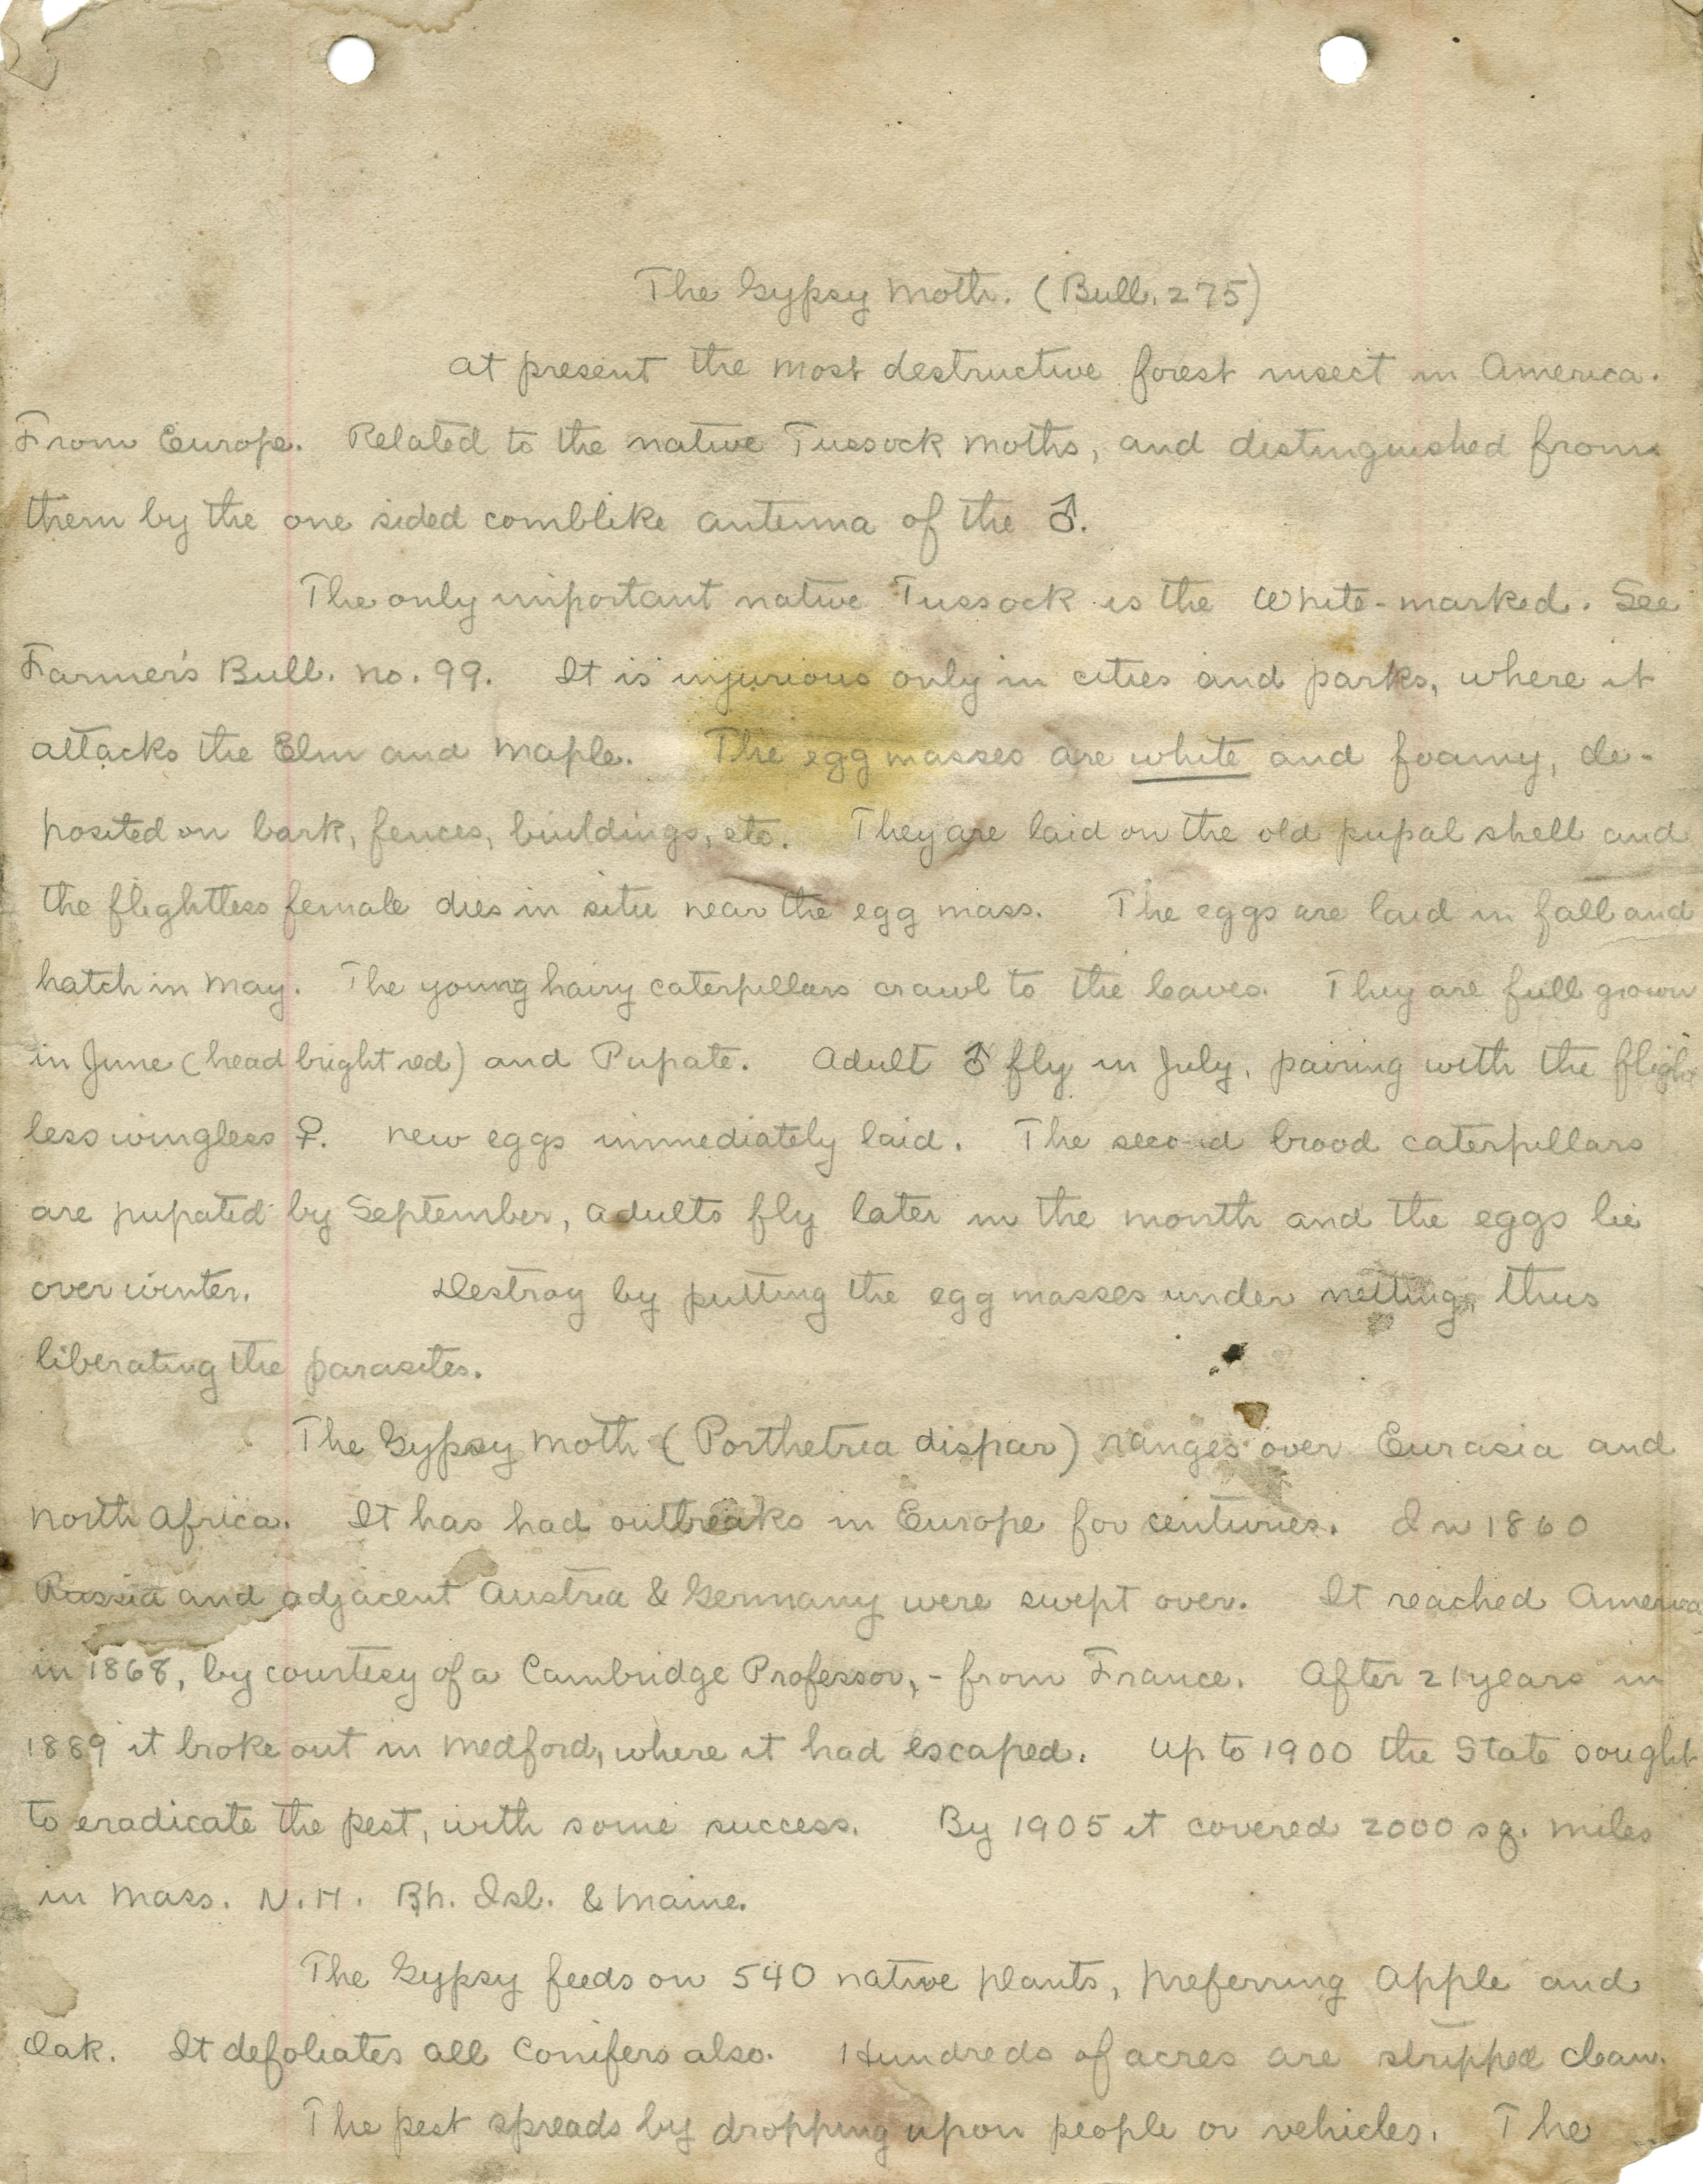 The Gypsy Moth. (Bull. 275)
At present the most destructive forest insect in America.
From Europe. Related to the native Tussock Moths, and distinguished from
them by the one sided comblike antenna of the ♂.
The only important native Tussock is the White-marked. See
Farmer's Bull. No. 99. It is injurious only in cities and parks, where it
attacks the Elm and Maple. The egg masses are white and foamy, de-
posited on bark, fences, buildings, etc. They are laid on the old pupal shell and
the flightless female dies in situ near the egg mass. The eggs are laid in fall and
hatch in May. The young hairy caterpillars crawl to the leaves. They are full grown
in June (head bright red) and Pupate. Adult ♂ fly in July, pairing with the flight
less wingless ♀. New eggs immediately laid. The second brood caterpillars
are pupated by September, adults fly later in the month and the eggs lie
over winter. Destroy by putting the egg masses under netting, thus
liberating the parasites.
The Gypsy Moth (Porthetria dispar) ranges over Eurasia and
North Africa. It has had outbreaks in Europe for centuries. In 1860
Russia and adjacent Austria & Germany were swept over. It reached America
in 1868, by courtesy of a Cambridge Professor, - from France. After 21 years in
1889 it broke out in Medford, where it had escaped. Up to 1900 the State sought
to eradicate the pest, with some success. By 1905 it covered 2000 sq. miles
in Mass. N.H. Rh. Isl. & Maine.
The Gypsy feeds on 540 native plants, preferring Apple and
Oak. It defoliates all Conifers also. Hundreds of acres are stripped clean.
The pest spreads by dropping upon people or vehicles. The